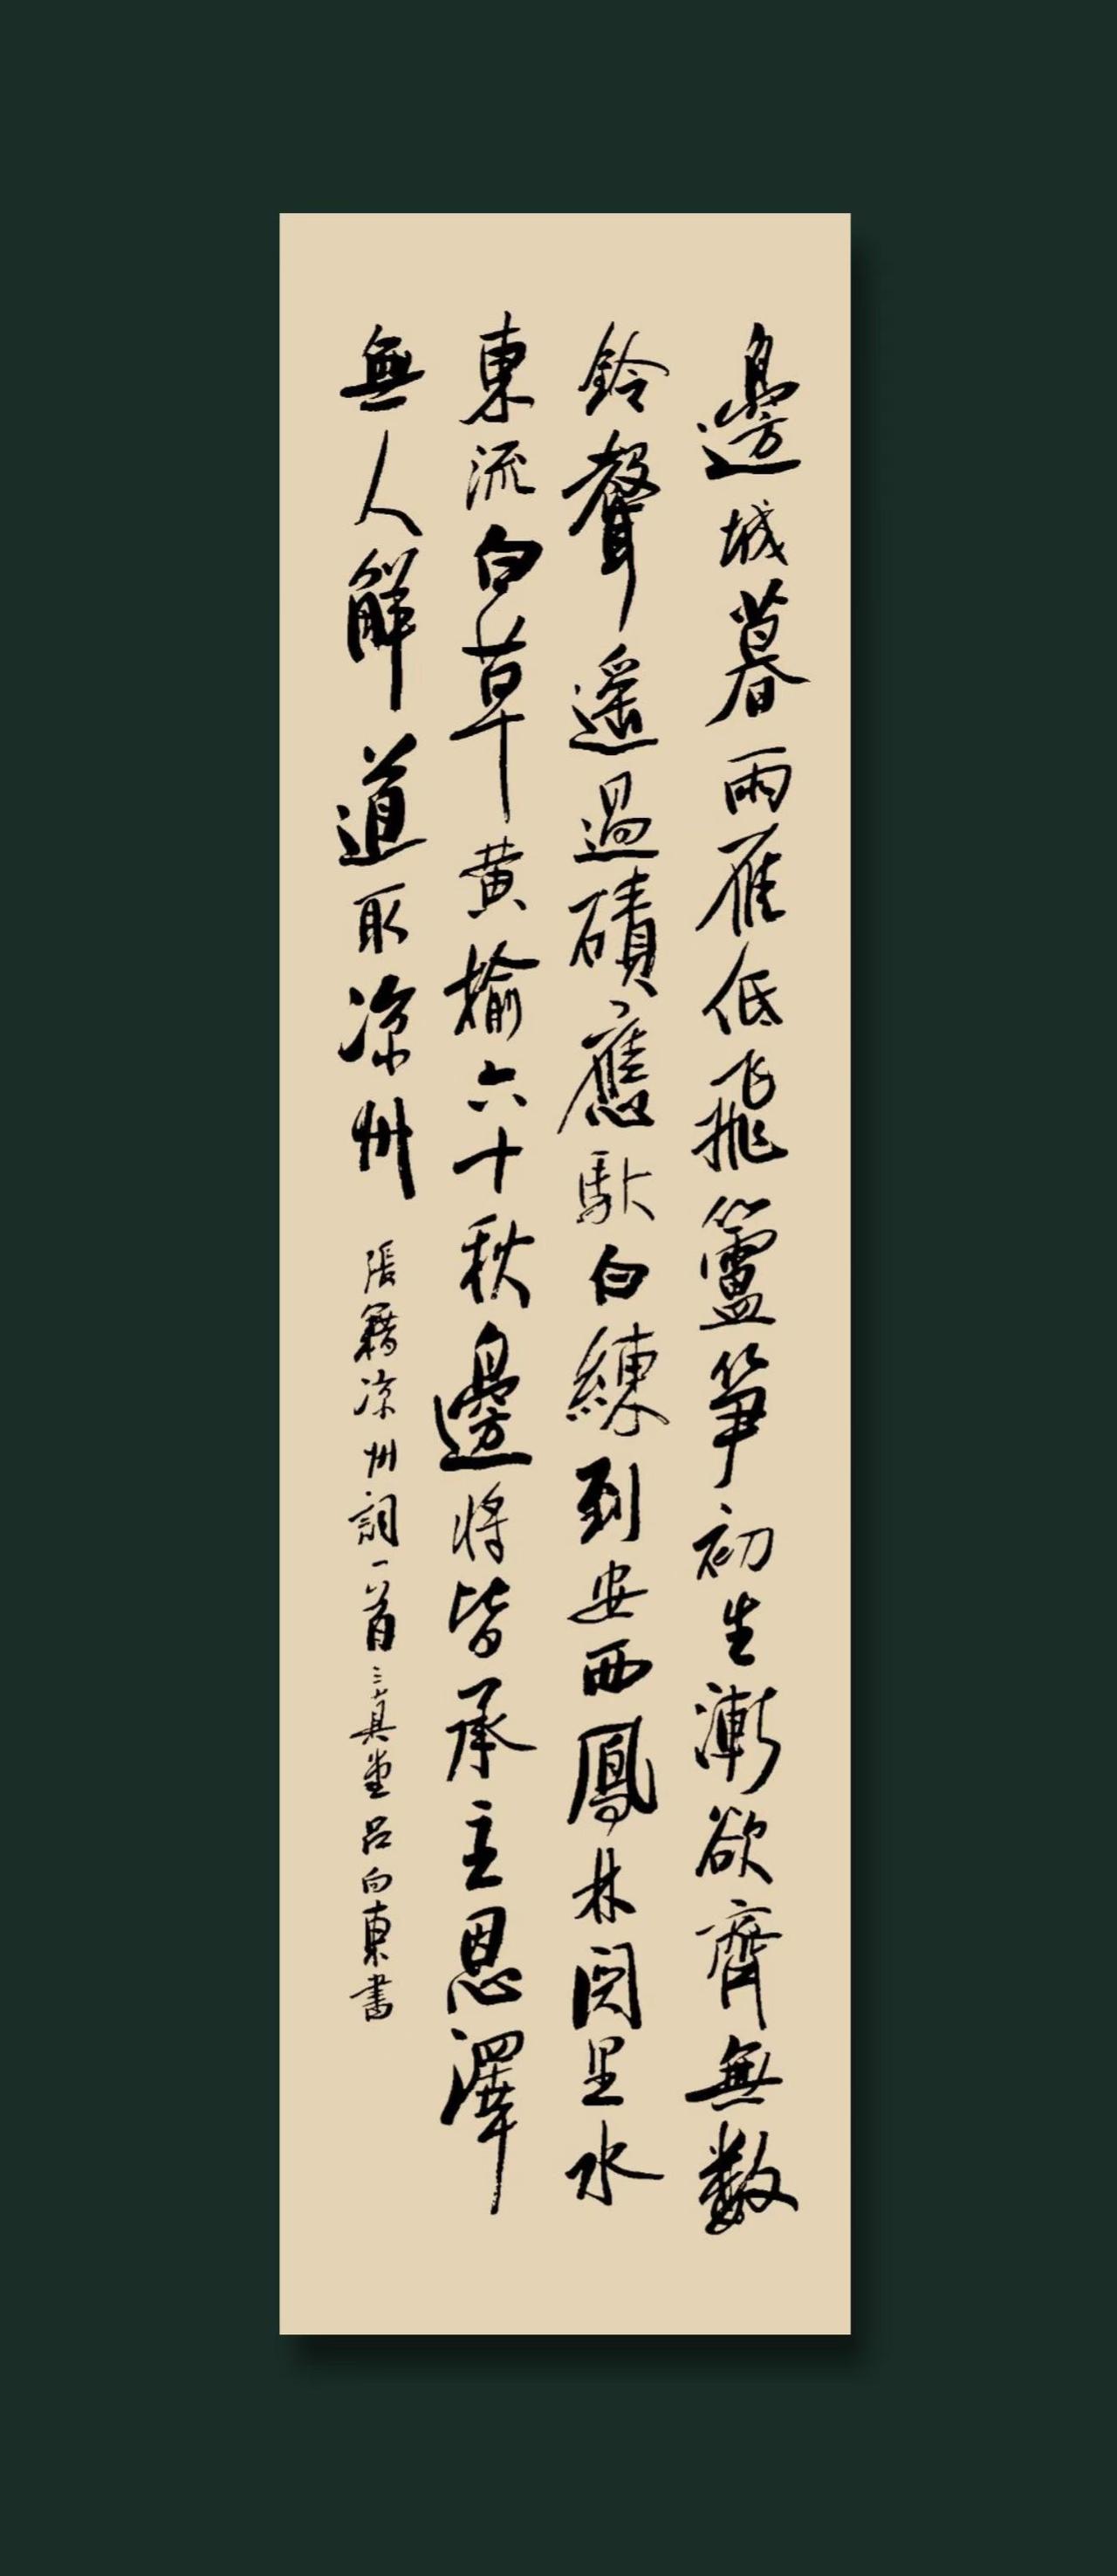 邊城暮雨雁低飛籚筍初生漸欲齊無數
鈴聲遥過磧應馱白練到安西鳳林関里水
東流白草黄榆六十秋邊將皆承主恩澤
無人解道取凉州
張籍凉州詞一首三真堂吕向東書